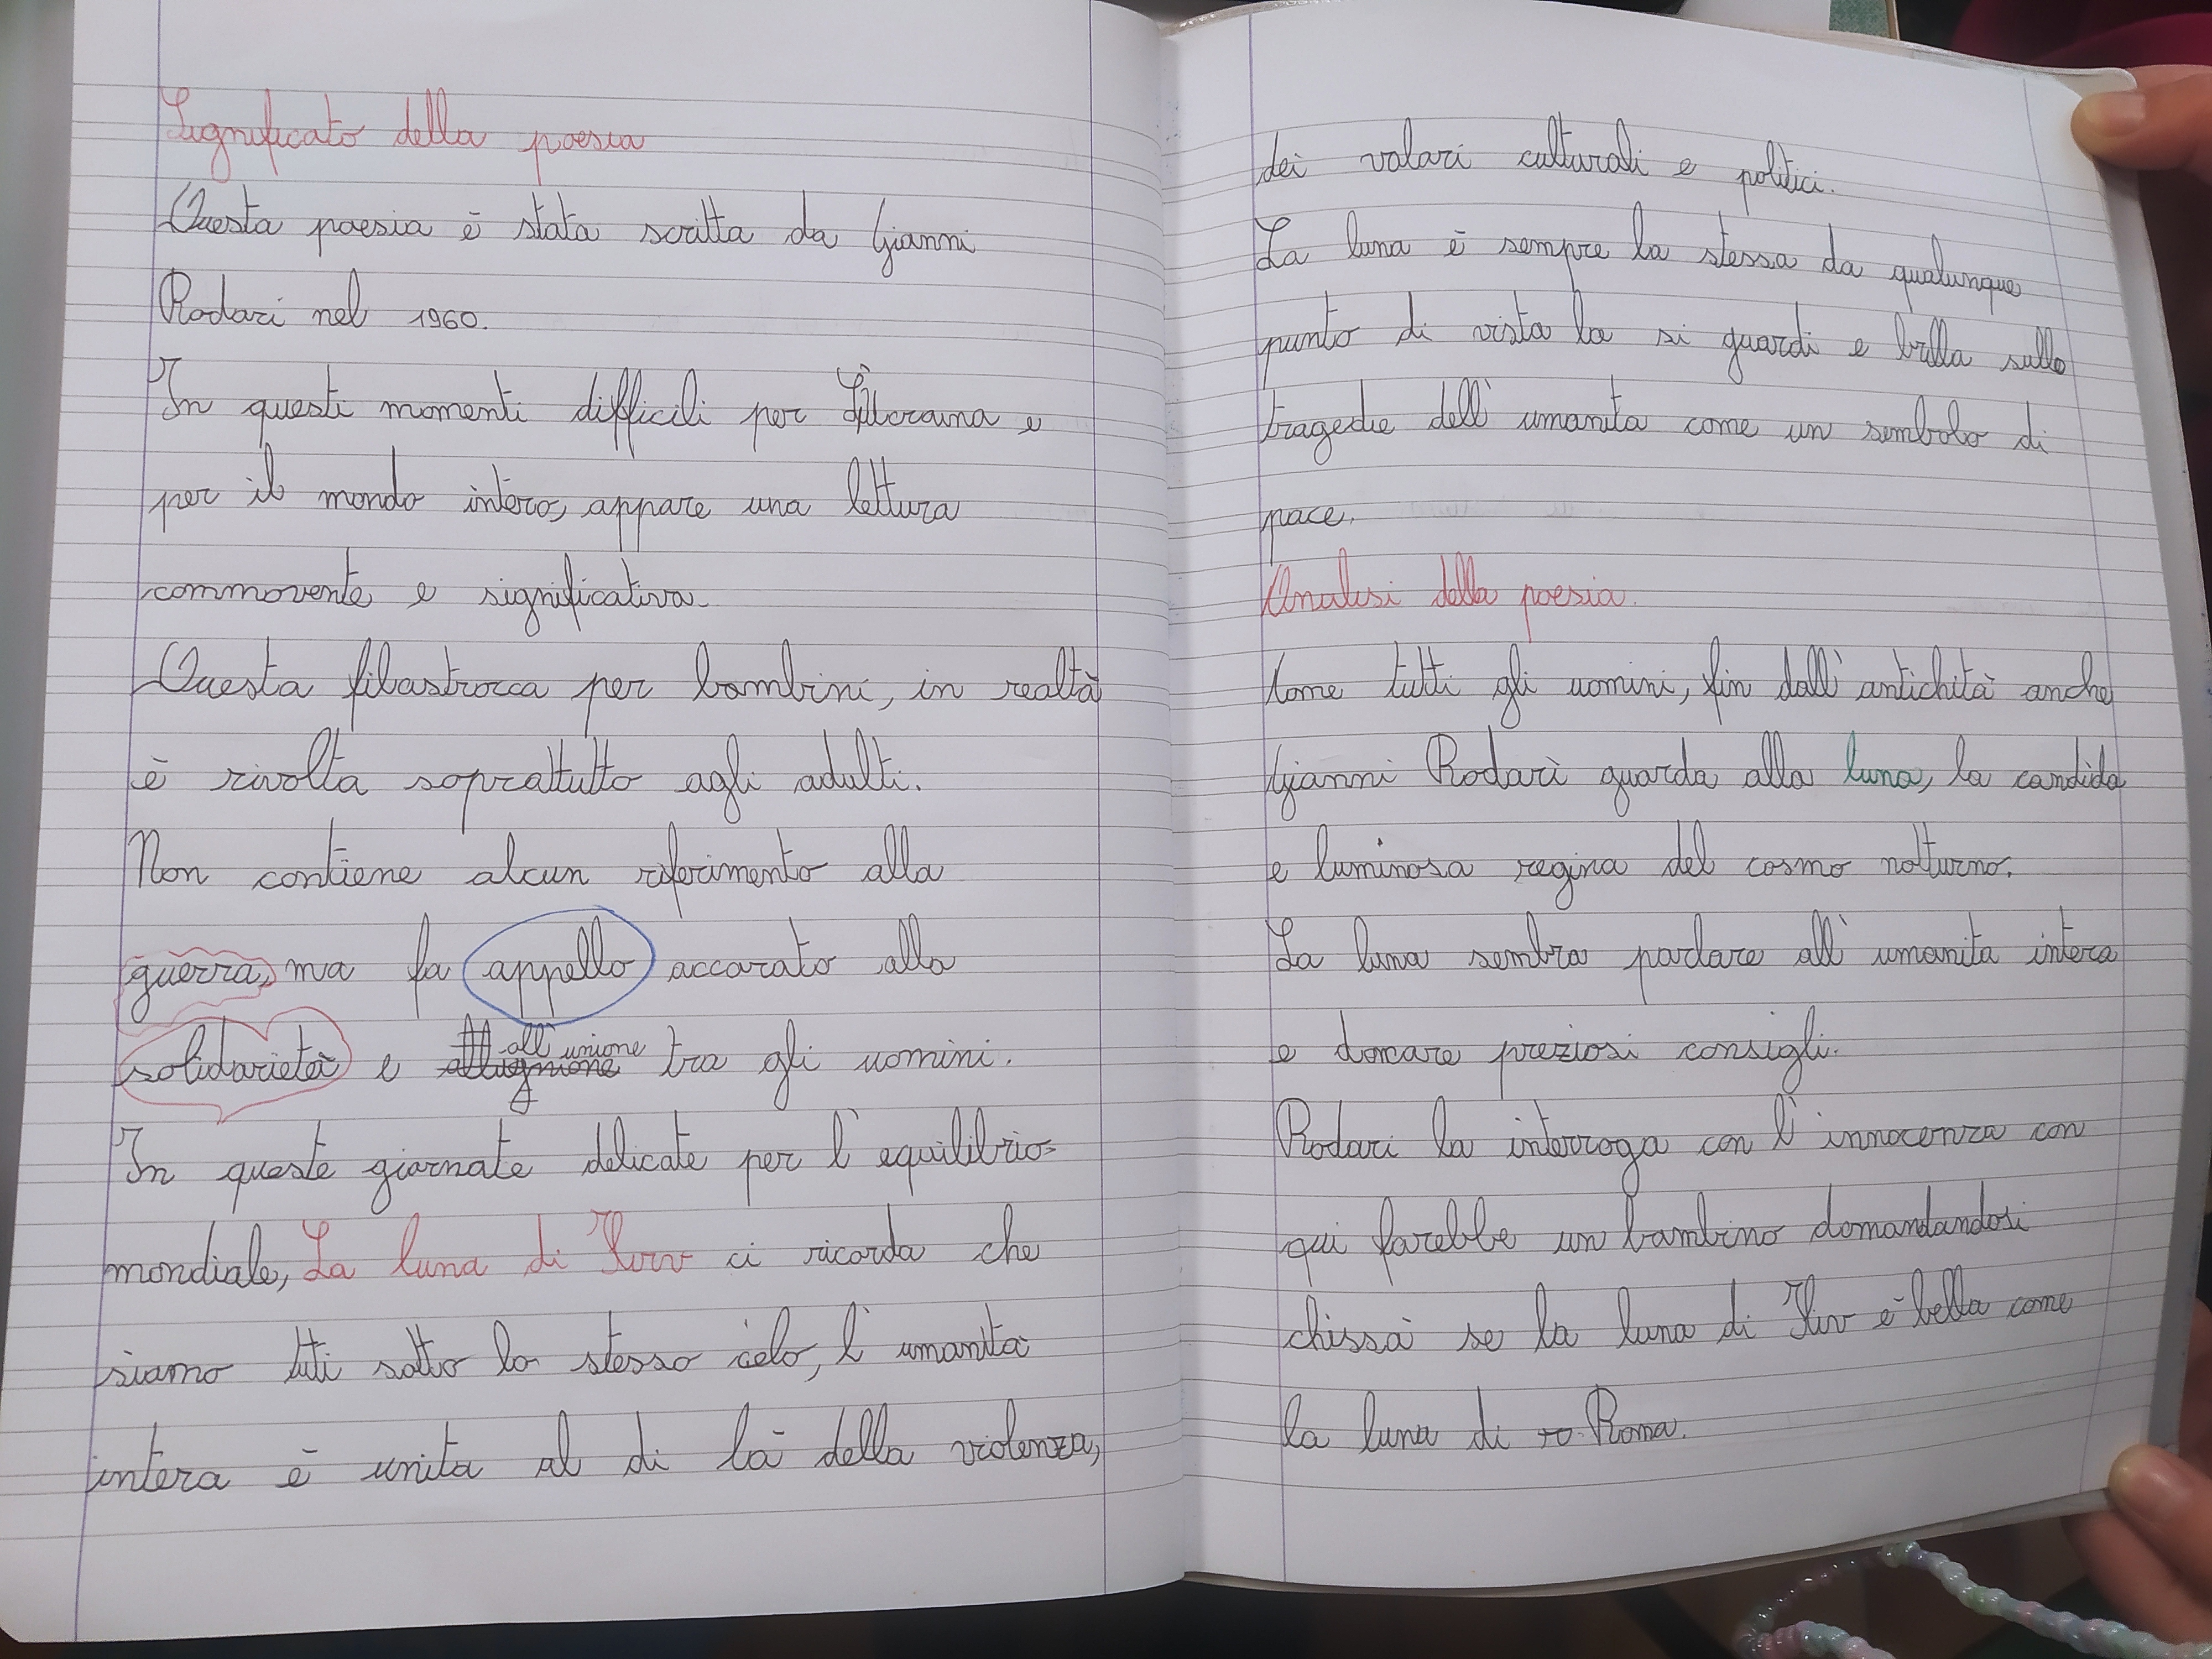 Significato della poesia
Questa poesia è stata scritta da Gianni
Rodari nel 1960.
In questi momenti difficili per e
per il mondo intero, appare una lettura
commovente e significativa.
Questa filastrocca per bambini, in realtà
è rivolta soprattutto agli adulti.
Non contiene alcun riferimento alla
guerra, ma fa appello accorato alla
solidarietà e all'unione tra gli uomini.
In queste giornate delicate per l'equilibrio
mondiale, La luna di Kiev ci ricorda che
siamo tutti sotto lo stesso cielo, l'umanità
intera è unita al di là della violenza,
dei valori culturali e politici.
La luna è sempre la stessa da qualunque
punto di vista la si guardi e brilla sulle
tragedie dell'umanita come un simbolo di
pace.
Analisi della poesia.
Come tutti gli uomini, fin dall'antichità anche
Gianni Rodari guarda alla luna, la candida
e luminosa regina del cosmo notturno.
La luna sembra parlare all'umanita intera
e donare preziosi consigli.
Rodari la interroga con l'innocenza con
qui farebbe un bambino domandandosi
chissà se la luna di Kiv è bella come
la luna di ro Roma.